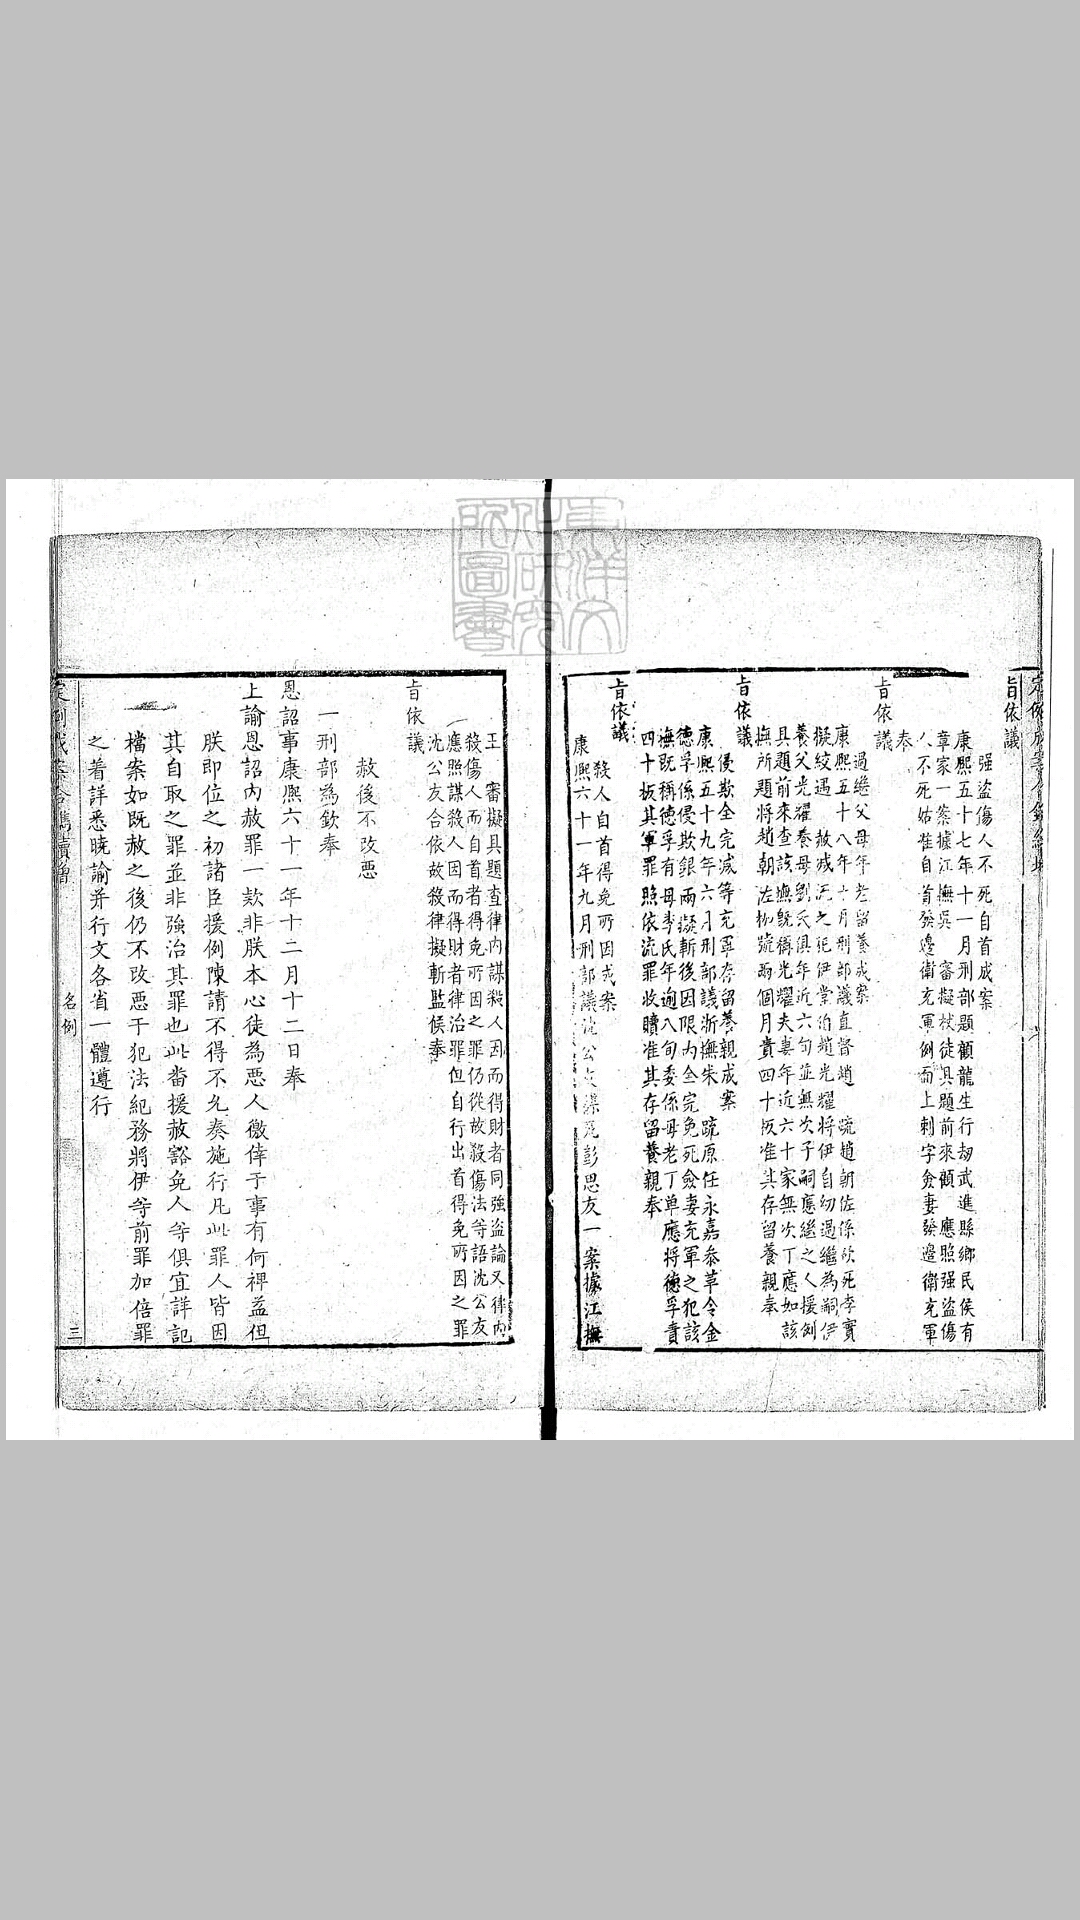 旨依議
强盜傷人不死自首成案
康熙五十七年十一月刑部題顧龍生行劫武進縣鄉民侯有
章家一案據江撫吳 審擬杖徒具題前來顧 應照强盜傷
人不死姑准自首發邊衛充軍例面上刺字僉妻發邊衛充軍
奉
旨依議
過繼父母年老留養成案
康熙五十八年十月刑部議直督趙 疏趙朝佐係 死李實
擬絞遇 赦減 之犯伊堂伯趙光耀將伊自幼過繼為嗣伊
養父光耀養母劉氏俱年近六旬並無次子嗣應繼之人援例
具題前來查該撫既稱光耀夫妻年近六十家無次丁應如該
撫所題將趙朝佐枷號兩個月責四十板准其存留養親奉
旨依議
侵欺全完減等充軍存留養親成案
康熙五十九年六月刑部議浙撫朱 疏原任永嘉參革令金
德孚係侵欺銀兩擬斬後因限內全完免死僉妻充軍之犯該
撫既稱德孚有母李氏年逾八旬委係母老丁單應將德孚責
四十板其軍罪照依流罪收贖准其存留養親奉
旨依議
殺人自首得免所因成案
康熙六十一年九月刑部議沈公友謀死彭思友一案據江撫
王 審擬具題查律內謀殺人因而得財者同強盜論又律內
殺傷人而自首者得免所因之罪仍從故殺傷法等語沈公友
應照謀殺人因而得財者律治罪但自行出首得免所因之罪
沈公友合依故殺律擬斬監候奉
旨依議
赦後不改惡
一刑部為欽奉
恩詔事康熙六十一年十二月十二日奉
上諭恩詔內赦罪一款非朕本心徒為惡人徼倖于事有何裨益但
朕即位之初諸臣援例陳請不得不允奏施行凡此罪人皆因
其自取之罪並非強治其罪也此番援赦豁免人等俱宜詳記
檔案如既赦之後仍不改惡干犯法紀務將伊等前罪加倍罪
之着詳悉曉諭并行文各省一體遵行
名例
三